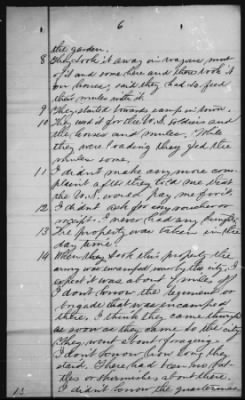 6
the garden.
8 They took it away in wagons most
of it and some here and there took it
on horses, said they had to feed
their mules with it.
9 They started towards camp in town.
10 They used it for the U.S. Soldiers and
the horses and mules. While
they were loading they fed the
mules some.
11 I didn't make any more com-
plaint after they told me that
the U.S. would pay me for it
12 I didn't ask for any voucher or
receipt. I never had any
13 The property was taken in the
day time.
14 When they took this property the
army was encamped near the city. I
expect it was about mile off
I don't know the regiment or
brigade that was encamped
there. I think they came
as soon as they came to the city
They went about foraging.
I don't know how long they
staid. There had been no bat-
tles or skirmishes about there.
I didn't know the quartermas-
13